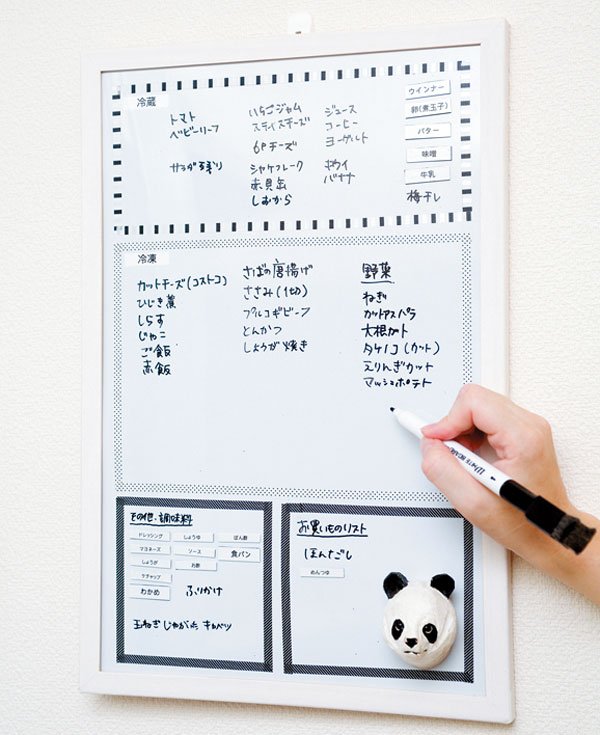 冷蔵
トマト
ベビーリーフ
サラダ残り
いちごジャム
スライスチーズ
6Pチーズ
シャケフレーク
赤貝缶
しおから
ジュース
コーヒー
ヨーグルト
キウイ
バナナ
ウインナー
卵(煮玉子)
バター
味噌
牛乳
梅干し
冷凍
カットチーズ(コストコ)
ひじき煮
しらす
じゃこ
ご飯
赤飯
さばの唐揚げ
ささみ(1切)
プルコギビーフ
とんかつ
しょうが焼き
野菜
ねぎ
カットアスパラ
大根カット
タケノコ(カット)
えりんぎカット
マッシュポテト
その他・調味料
ドレッシング しょうゆ ぽん酢
マヨネーズ ソース 食パン
しょうが お酢
ケチャップ
わかめ ふりかけ
玉ねぎ じゃがいも キャベツ
お買いものリスト
ほんだし
めんつゆ